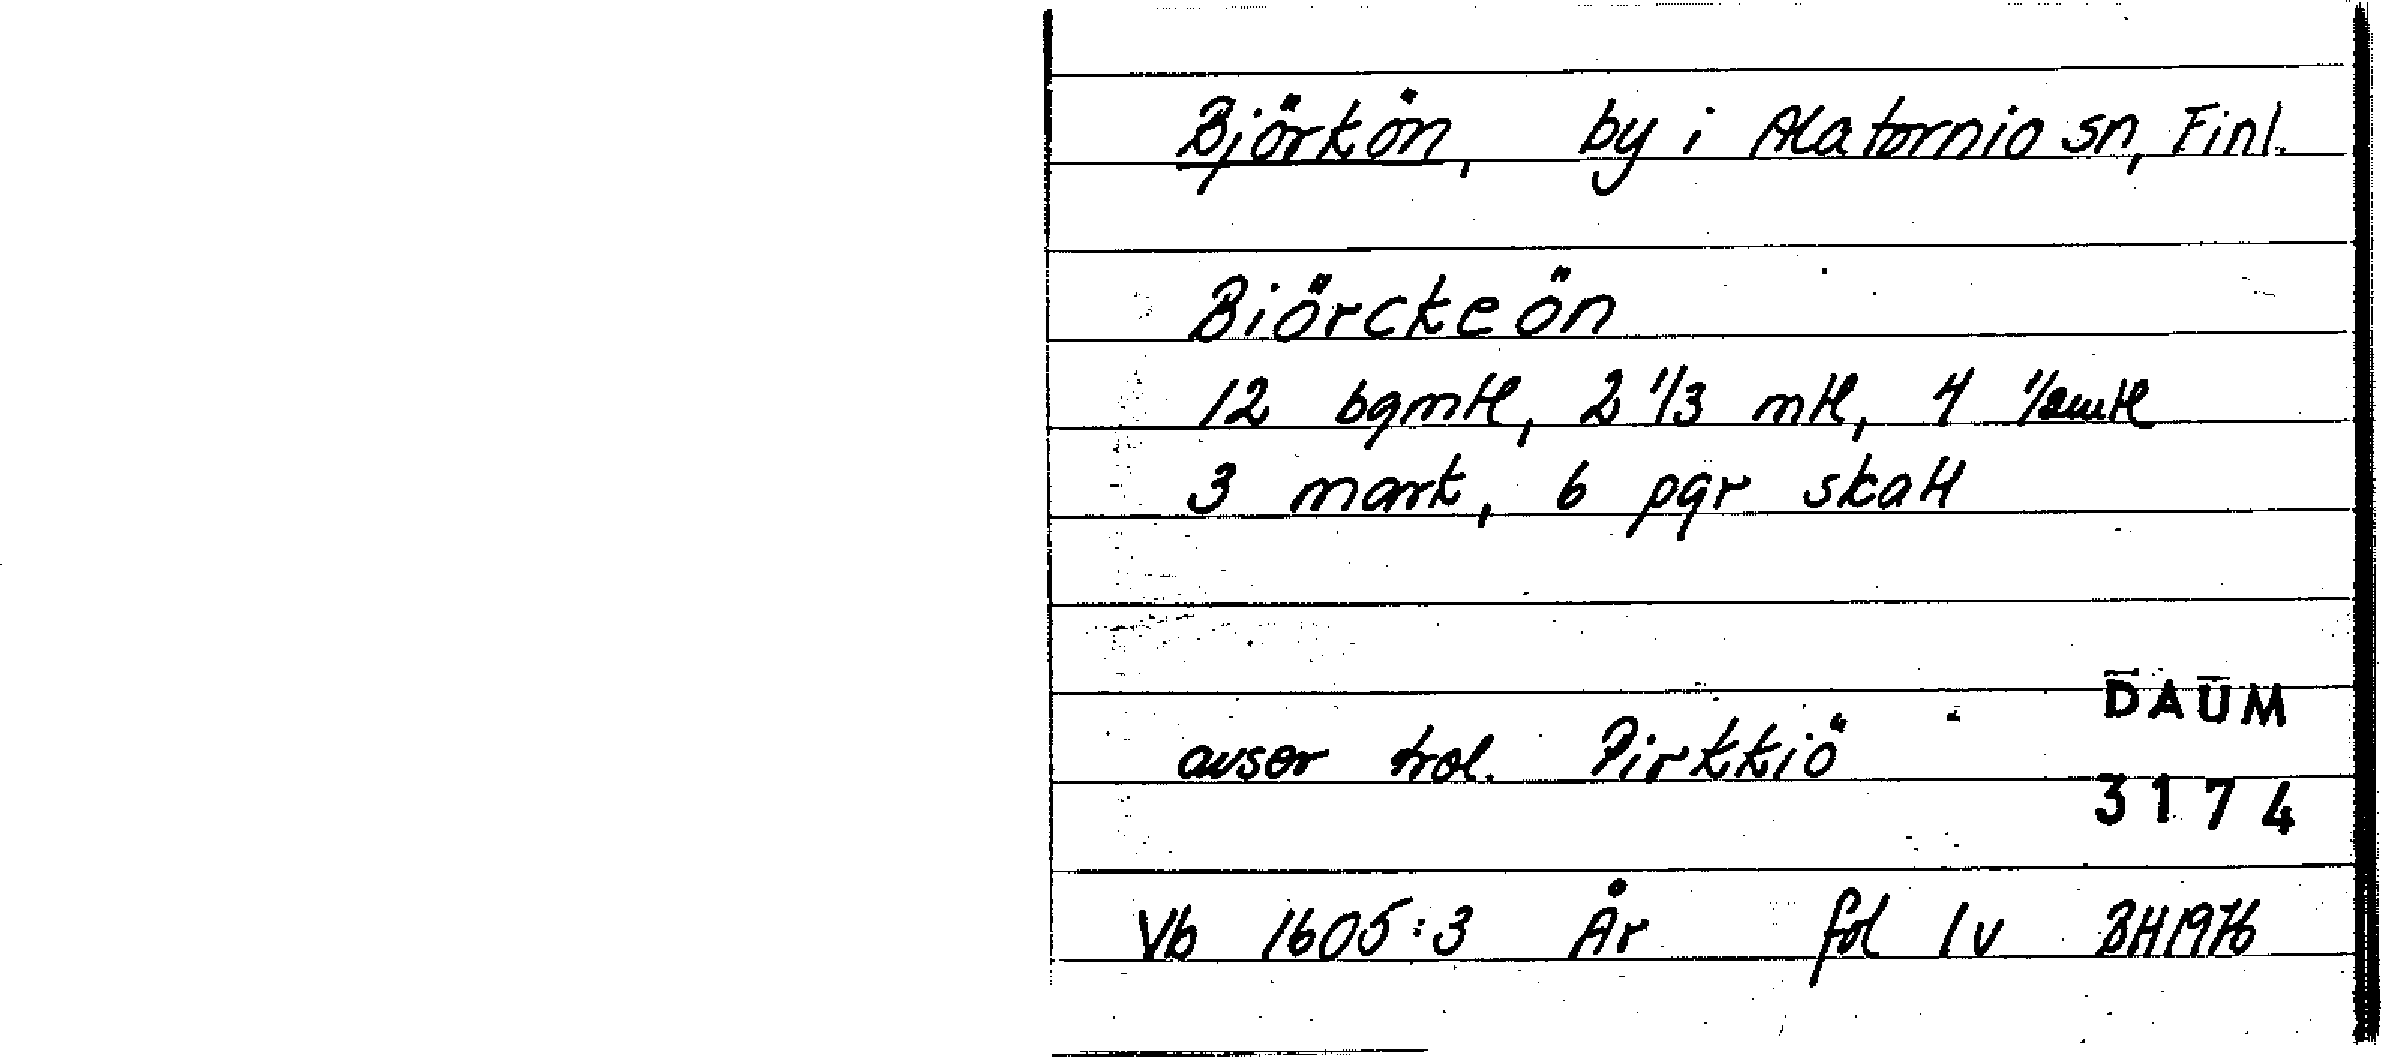 Björkön, by i Alatornio sn, Finl.
Biörckeön
12 bgmtl, 2 1/3 mtl, 4 1/2mtl
3 mark, 6 pgr skatt
DAUM
avser trol. Pirkkiö
3174
Vb 1605:3 År fol 1v BH1976